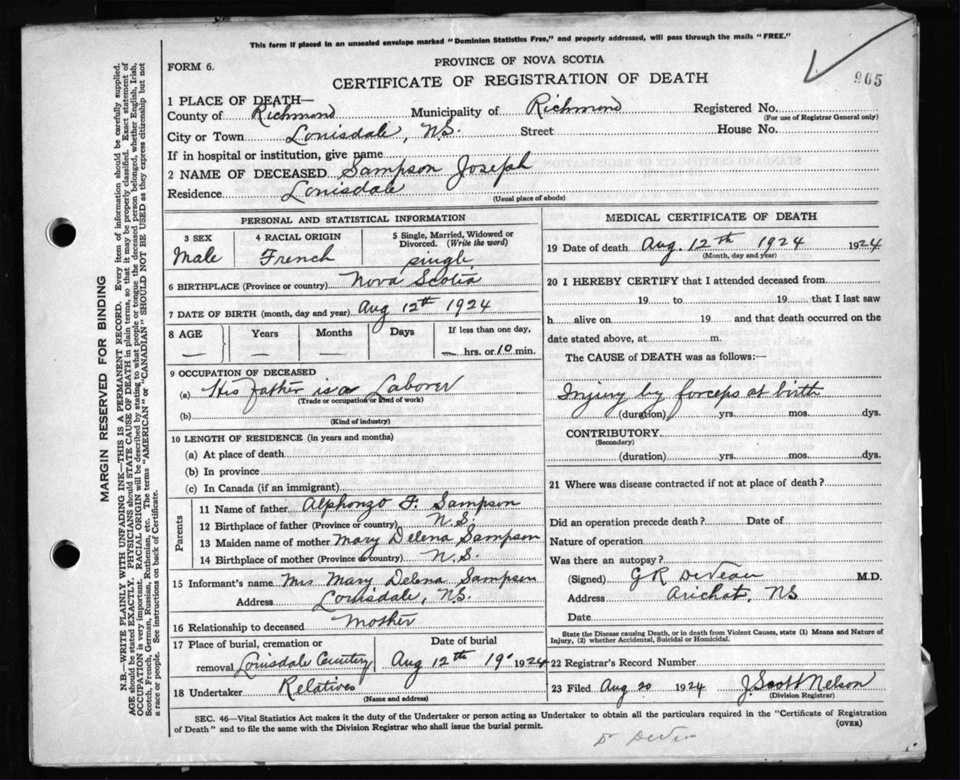 This form if placed in an unsealed envelope marked "Dominion Statistics Free," and properly addressed, will pass through the mails "FREE."
PROVINCE OF NOVA SCOTIA
FORM 6.
CERTIFICATE OF REGISTRATION OF DEATH
965
1 PLACE OF DEATH—
County of Richmond Municipality of Richmond Registered No.
(For use of Registrar General only)
City or Town Louisdale, N.S. Street House No.
If in hospital or institution, give name
2 NAME OF DECEASED Sampson Joseph
Residence Louisdale
(Usual place of abode)
PERSONAL AND STATISTICAL INFORMATION
3 SEX 4 RACIAL ORIGIN 5 Single, Married, Widowed or Divorced. (Write the word)
Male French single
6 BIRTHPLACE (Province or country) Nova Scotia
7 DATE OF BIRTH (month, day and year) Aug 12th 1924
8 AGE Years Months Days If less than one day,
— — — — — hrs. or 10 min.
9 OCCUPATION OF DECEASED
(a) His father is a Laborer
(Trade or occupation or kind of work)
(b)
(Kind of industry)
10 LENGTH OF RESIDENCE (in years and months)
(a) At place of death
(b) In province
(c) In Canada (if an immigrant)
Parents
11 Name of father Alphonzo F. Sampson
12 Birthplace of father (Province or country) N.S.
13 Maiden name of mother Mary Delena Sampson
14 Birthplace of mother (Province or country) N.S.
15 Informant's name Mrs Mary Delena Sampson
Address Louisdale, N.S.
16 Relationship to deceased Mother
17 Place of burial, cremation or Date of burial
removal Louisdale Aug 12th 19 1924
18 Undertaker Relatives
(Name and address)
MEDICAL CERTIFICATE OF DEATH
19 Date of death Aug. 12th 1924 1924
(Month, day and year)
20 I HEREBY CERTIFY that I attended deceased from
19 to 19 that I last saw
h alive on 19 and that death occurred on the
date stated above, at m.
The CAUSE of DEATH was as follows:—
Injury by forceps at birth
(duration) yrs. mos. dys.
CONTRIBUTORY
(Secondary)
(duration) yrs. mos. dys.
21 Where was disease contracted if not at place of death?
Did an operation precede death? Date of
Nature of operation
Was there an autopsy?
(Signed) G R DeVeau M.D.
Address Arichat, NS
Date
State the Disease causing Death, or in death from Violent Causes, state (1) Means and Nature of
Injury, (2) whether Accidental, Suicidal or Homicidal.
22 Registrar's Record Number
23 Filed Aug 20 1924 J. Scott Nelson
(Division Registrar)
SEC. 46—Vital Statistics Act makes it the duty of the Undertaker or person acting as Undertaker to obtain all the particulars required in the "Certificate of Registration
of Death" and to file the same with the Division Registrar who shall issue the burial permit.
(OVER)
MARGIN RESERVED FOR BINDING
N.B.—WRITE PLAINLY WITH UNFADING INK—THIS IS A PERMANENT RECORD. Every item of information should be carefully supplied.
AGE should be stated EXACTLY. PHYSICIANS should STATE CAUSE OF DEATH in plain terms, so that it may be properly classified. Exact statement of
OCCUPATION is very important. RACIAL ORIGIN will be described by stating to what people or tongue the deceased person belonged, whether English, Irish,
Scotch, French, German, Russian, Ruthenian, etc. The terms "AMERICAN" or "CANADIAN" SHOULD NOT BE USED as they express citizenship but not
a race or people. See instructions on back of Certificate.